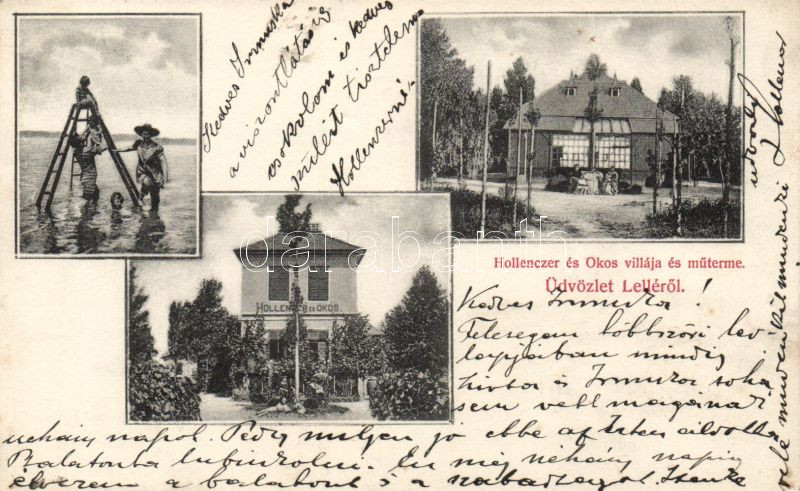 Kedves Irmuska
a viszontlátásig
csokolom és kedves
szüleit tisztelem
Hollenczerné
HOLLENCZER és OKOS.
darabanth
Hollenczer és Okos villája és műterme.
Üdvözlet Lelléről.
Kedves Irmuska!
Feleségem többszöri lev
lapjaiban mindig
hivta és Irmuska soha
sem vett magának
néhány napot. Pedig milyen jó ebbe az Isten áldotta
Balatonba lubiczkolni. Én még néhány napig
élvezem a balatont s a szabadságot.
minden
Hollenczer